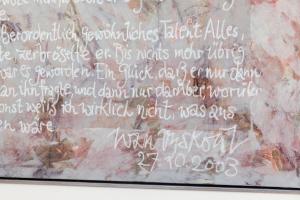 aberordentlich gewöhnliches Talent. Alles,
te, zerbröselte er. Bis nichts mehr übrig
war es geworden. Ein Glück, daß er nur dann
an ihn fragte, und dann nur darüber worüber
onst weiß ich wirklich nicht, was aus
en wäre.
27.10.2003